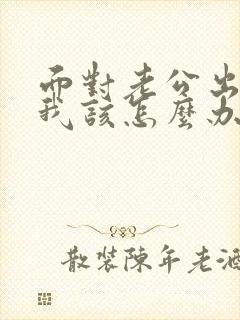 面對老公出
我該怎麼办
散裝陳年老酒